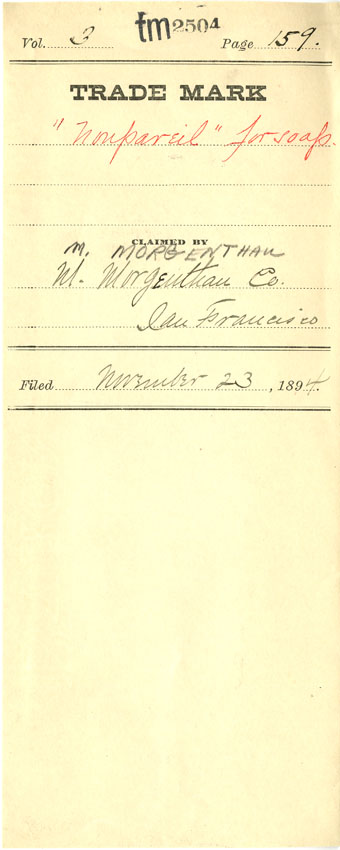 tm2504
Vol. 3 Page 159.
TRADE MARK
"Nonpareil" for soap.
CLAIMED BY
M. MORGENTHAU
M. Morgenthau Co.
San Francisco
Filed November 23, 1894.